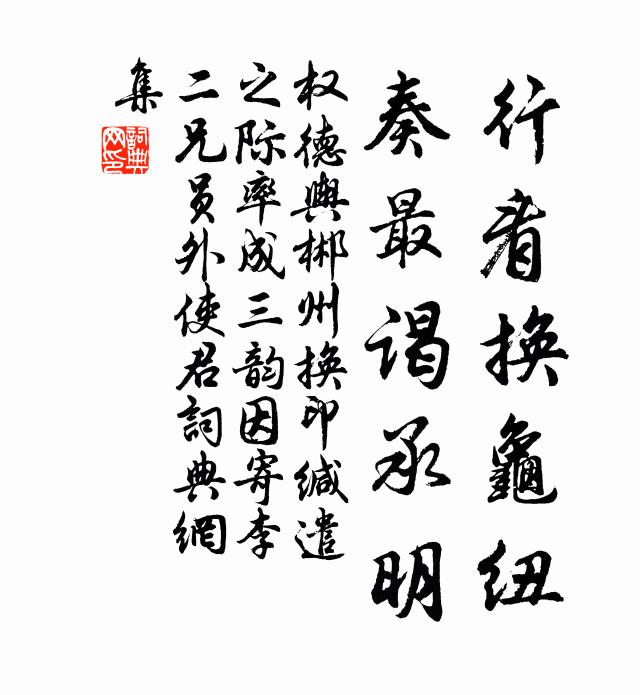 行看换龜纽
奏最谒承明
权德輿郴州换印缄遣
之际率成三韵因寄李
二兄员外使君詞典網
集
詞典
网印